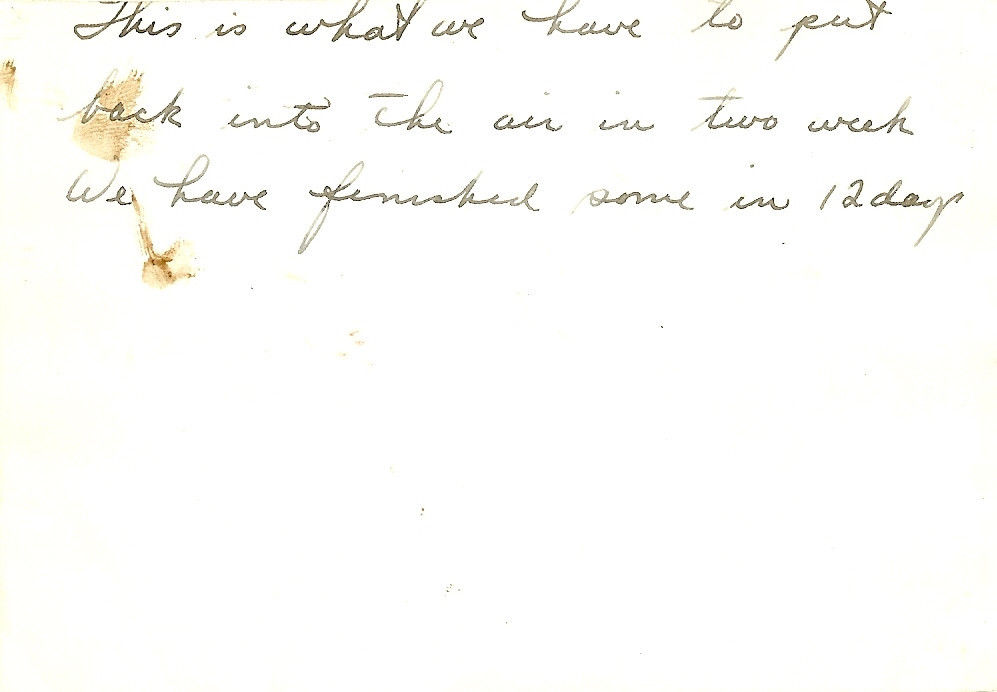 This is what we have to put
back into the air in two week
We have finished some in 12 days